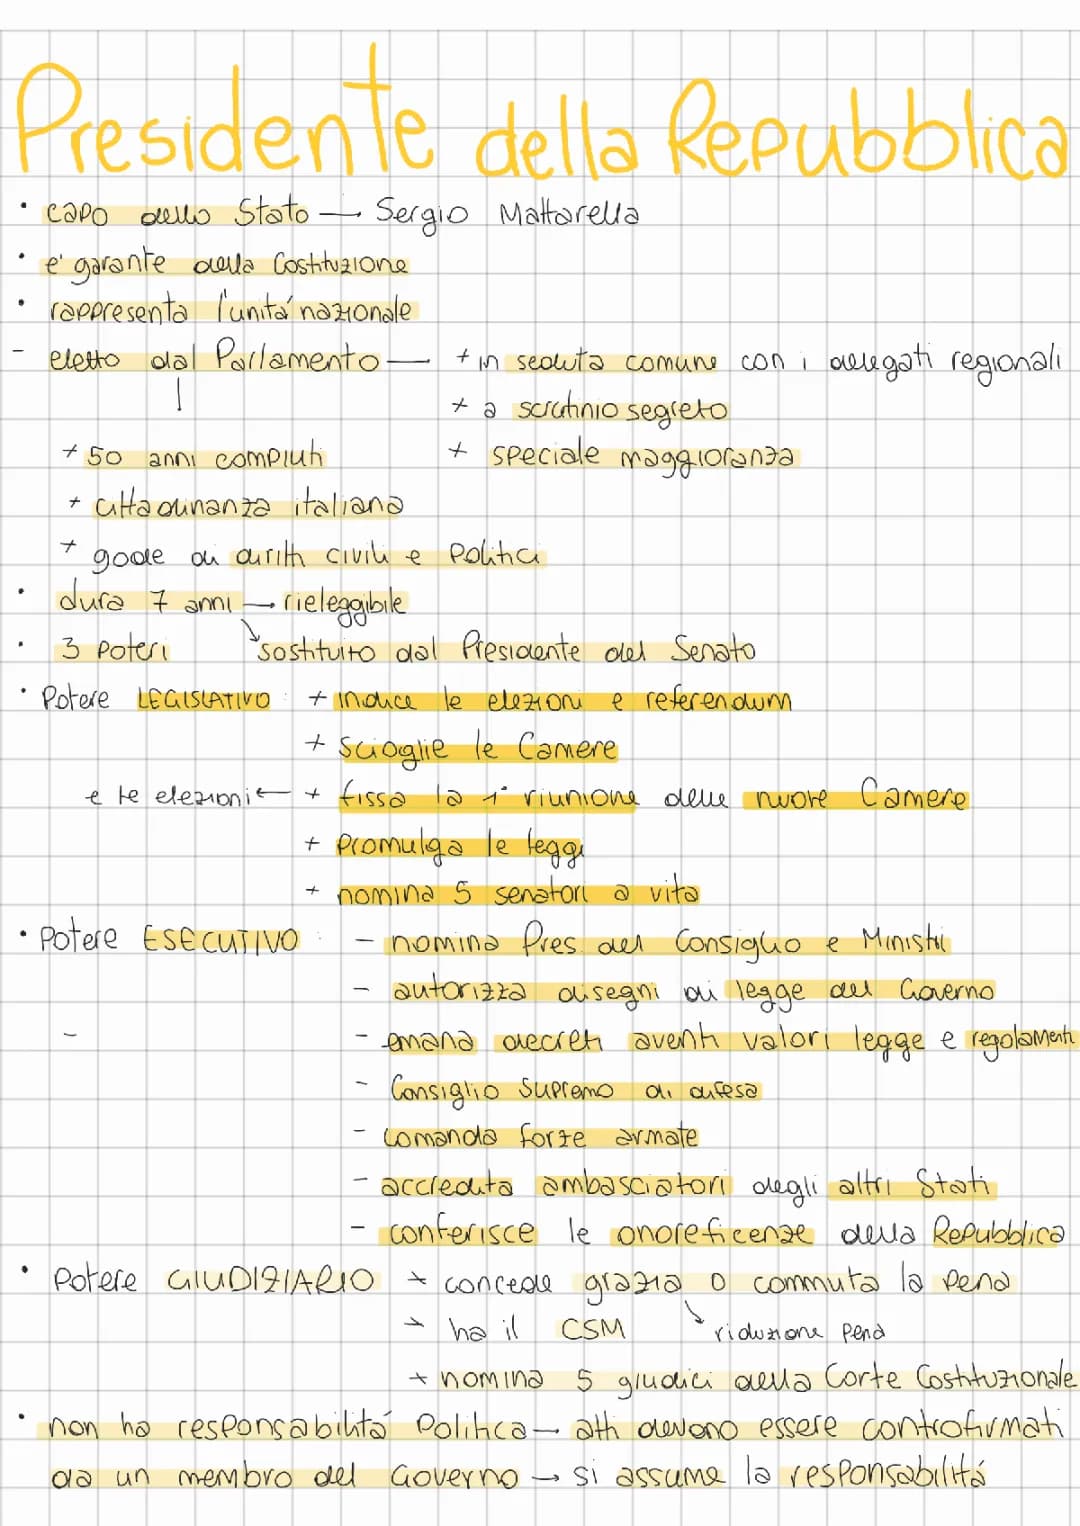 Presidente della Repubblica
• capo dello Stato → Sergio Mattarella
• e' garante della Costituzione
• rappresenta l'unitá nazionale
- eletto dal Parlamento — + in seduta comune con i delegati regionali
+ a scrutinio segreto
+ 50 anni compiuti + speciale maggioranza
+ cittadinanza italiana
+ gode di diritti civili e politici
• dura 7 anni → rieleggibile
• 3 poteri sostituito dal Presidente del Senato
• Potere LEGISLATIVO : + indice le elezioni e referendum
+ scioglie le Camere
e le elezioni ← + fissa la 1° riunione delle nuove Camere
+ promulga le leggi
+ nomina 5 senatori a vita
• Potere ESECUTIVO : - nomina Pres. del Consiglio e Ministri
- autorizza disegni di legge del Governo
- - emana decreti aventi valori legge e regolamenti
- Consiglio Supremo di difesa
- comanda forze armate
- accredita ambasciatori degli altri Stati
- conferisce le onoreficenze della Repubblica
• Potere GIUDIZIARIO + concede grazia o commuta la pena
+ ha il CSM riduzione pena
+ nomina 5 giudici della Corte Costituzionale
• non ha responsabilitá politica → atti devono essere controfirmati
da un membro del Governo → si assume la responsabilitá